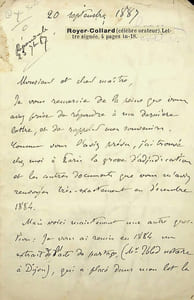 20 septembre 1887
Royer-Collard (célèbre orateur). Let-
tre signée, 4 pages in-18.
Monsieur et cher maître,
Je vous remercie de la peine que vous
avez prise de répondre à ma dernière
lettre, et de
Comme vous l'aviez prévu, j'ai trouvé
chez moi à Paris la grosse d'adjudication
et les autres documents que vous m'aviez
renvoyés très exactement en décembre
1884.
Mais voici maintenant une autre ques-
tion : Je vous ai remis en 1884 un
extrait de l'acte de partage, (Me notaire
à Dijon), qui a placé dans mon lot la